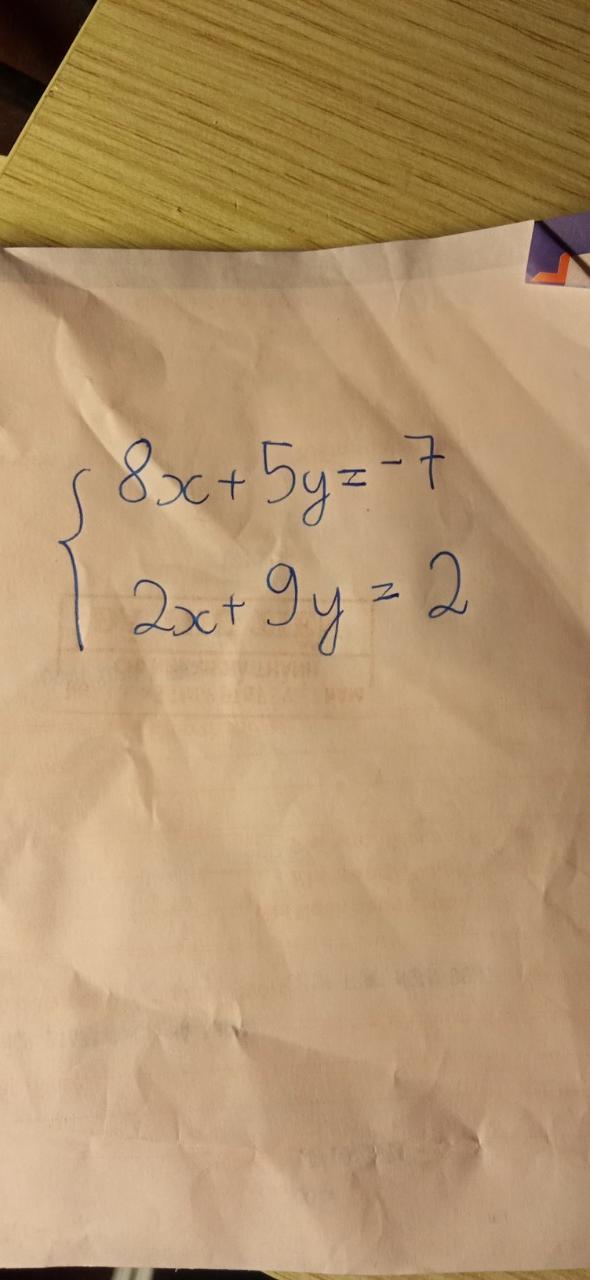 8x + 5y = -7
2x + 9y = 2